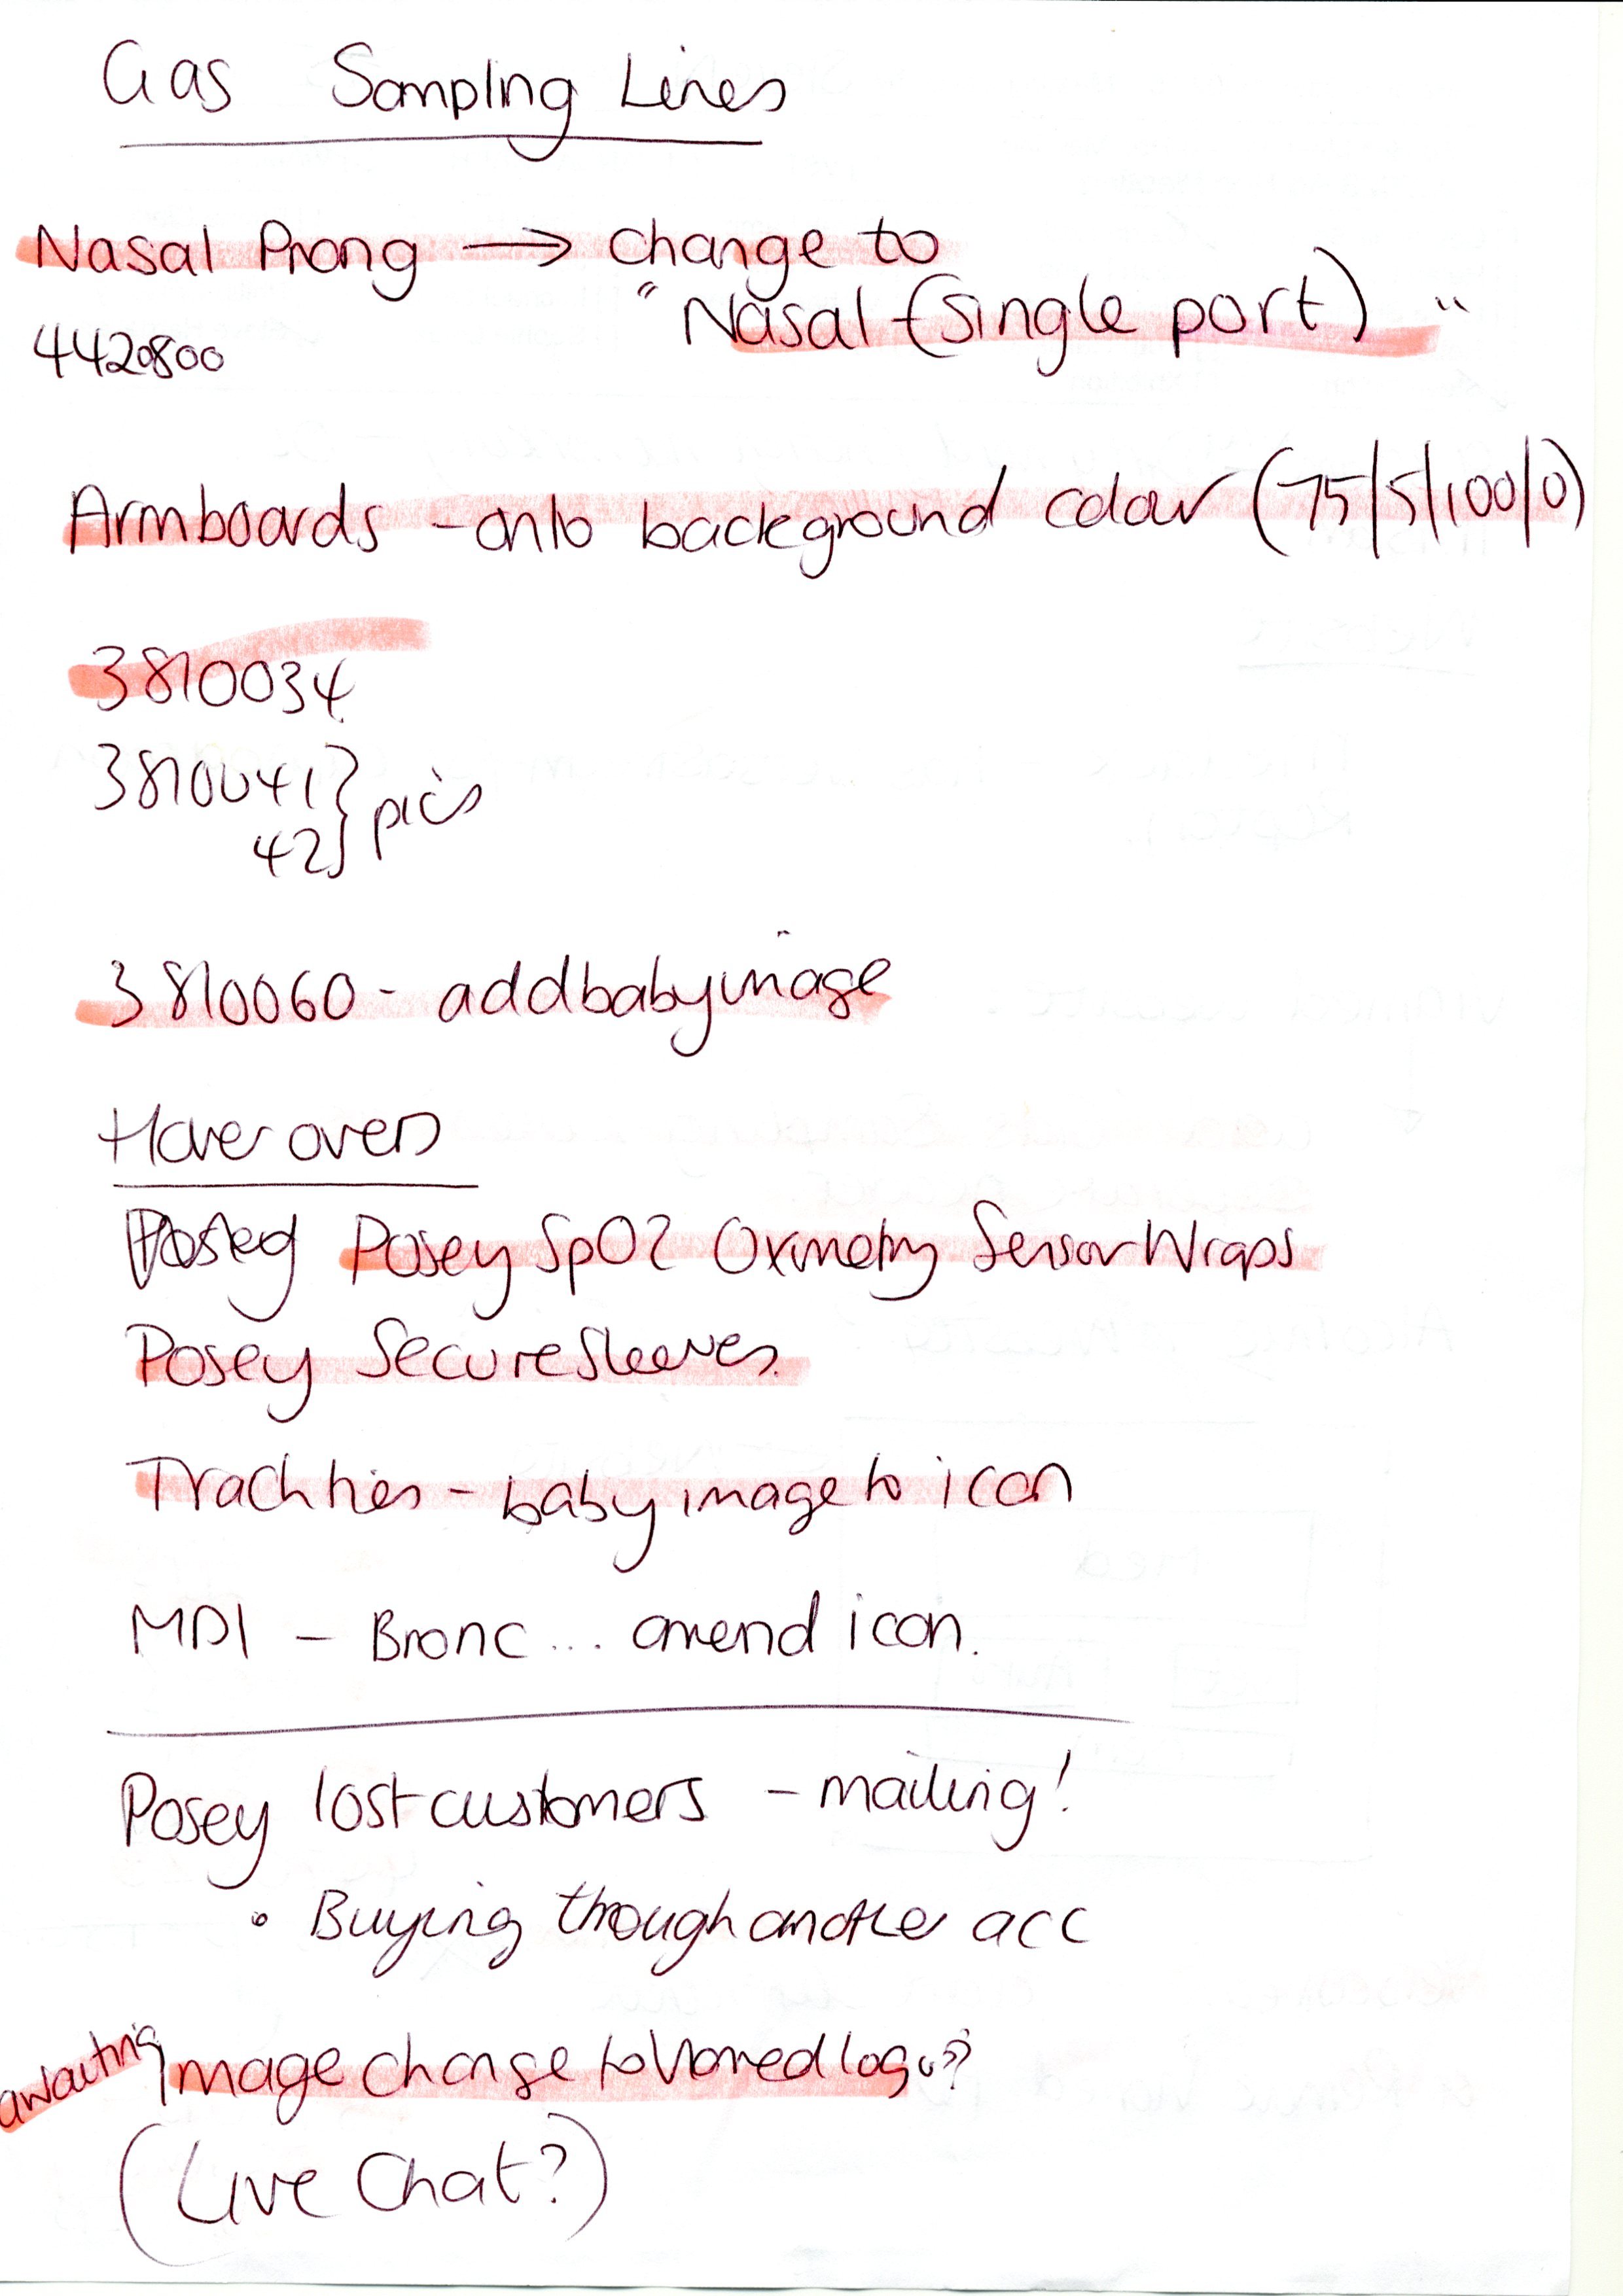 Gas Sampling Lines
Nasal Prong → change to
"Nasal (single port)"
4420800
Armboards - onto background colour (75/5/100/0)
3810034
3810041 } pics
42
3810060 - add baby image
Hover overs
Posey SpO2 Oximetry Sensor Wraps
Posey Secure Sleeves.
Trach ties - baby image to icon
MDI - Bronc... amend icon.
Posey lost customers - mailing!
• Buying through another acc
awaiting Image change to logo??
(Live Chat?)